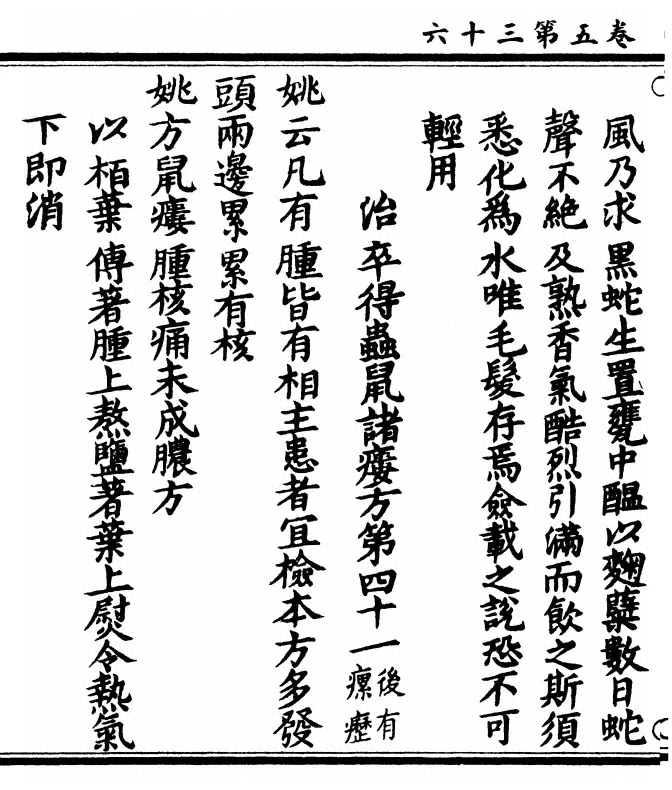 卷五第三十六
風乃求黑蛇生置甕中醖以麴糵數日蛇
聲不絶及熟香氣酷烈引滿而飲之斯須
悉化爲水唯毛髮存焉僉載之說恐不可
輕用
治卒得蟲鼠諸瘻方第四十一後有瘰癧
姚云凡有腫皆有相主患者宜檢本方多發
頭兩邊累累有核
姚方鼠瘻腫核痛未成膿方
以栢葉傅著腫上熬鹽著葉上熨令熱氣
下即消